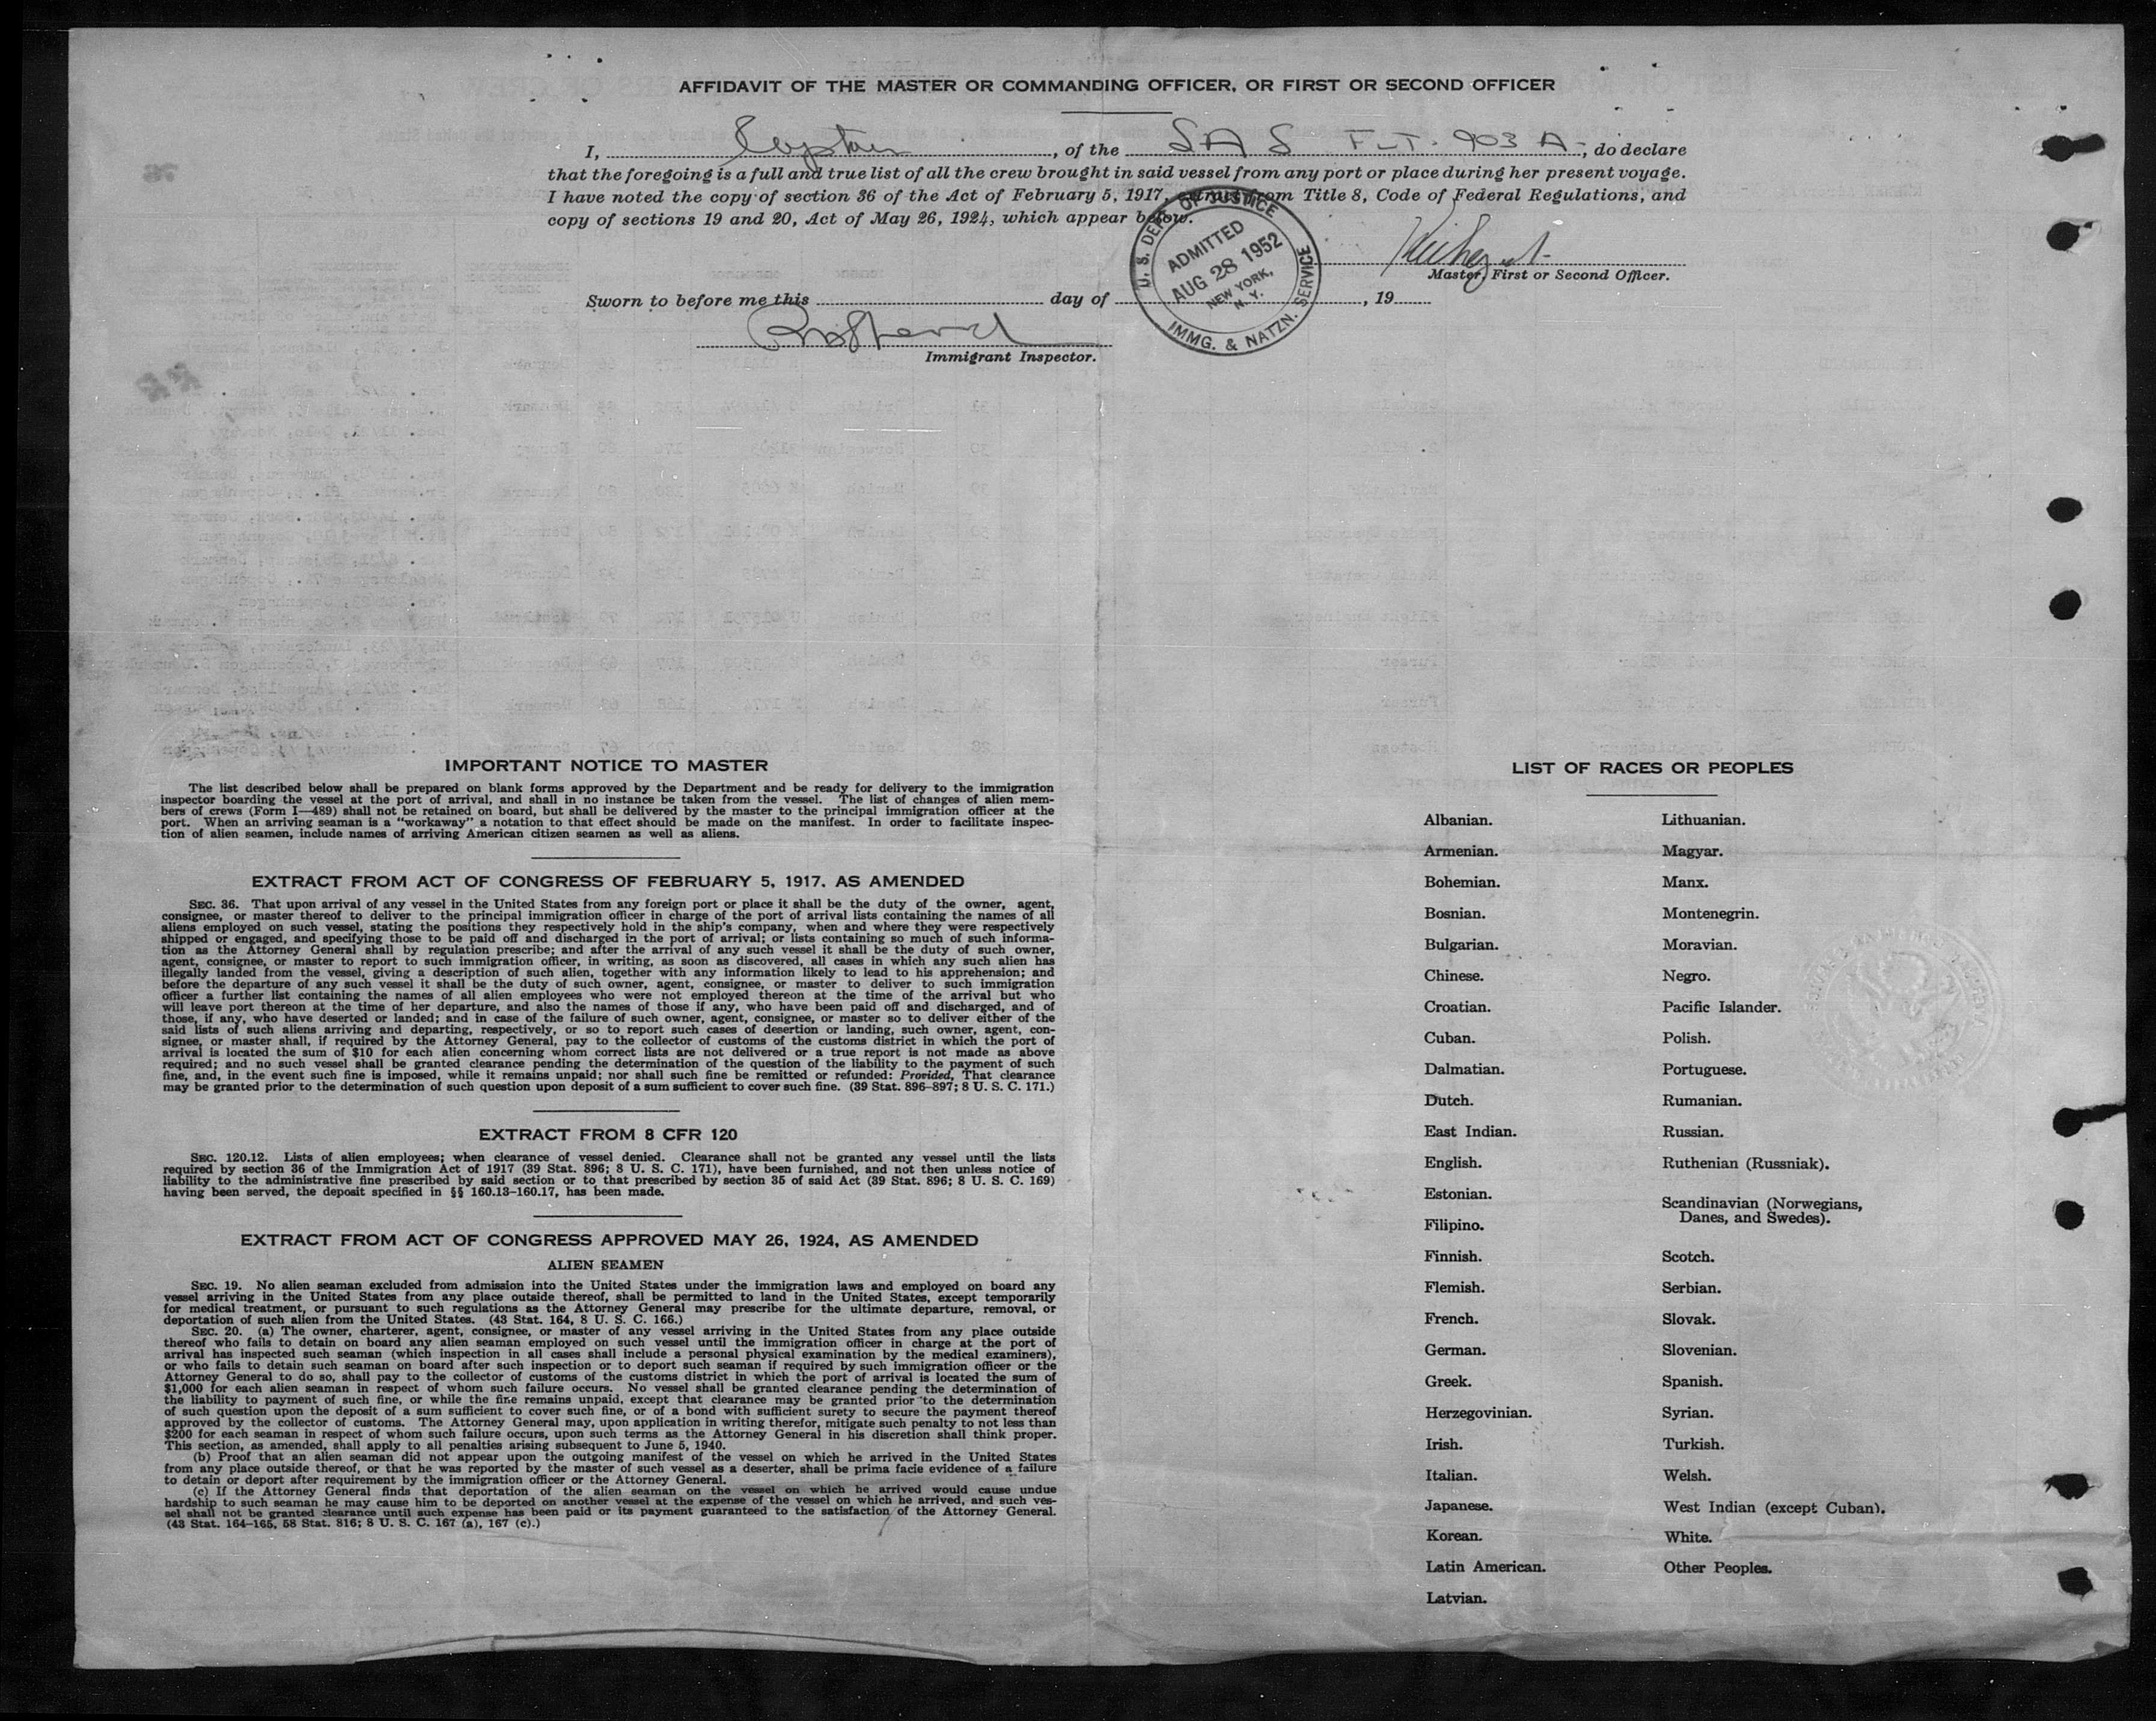 AFFIDAVIT OF THE MASTER OR COMMANDING OFFICER, OR FIRST OR SECOND OFFICER
I, Captain, of the SAS FLT. 903 A, do declare
that the foregoing is a full and true list of all the crew brought in said vessel from any port or place during her present voyage.
I have noted the copy of section 36 of the Act of February 5, 1917, extract from Title 8, Code of Federal Regulations, and
copy of sections 19 and 20, Act of May 26, 1924, which appear below.
U. S. DEPT. OF JUSTICE
ADMITTED
AUG 28 1952
NEW YORK,
N. Y.
IMMG. & NATZN. SERVICE
Master, First or Second Officer.
Sworn to before me this day of , 19
Immigrant Inspector.
IMPORTANT NOTICE TO MASTER
The list described below shall be prepared on blank forms approved by the Department and be ready for delivery to the immigration
inspector boarding the vessel at the port of arrival, and shall in no instance be taken from the vessel. The list of changes of alien mem-
bers of crews (Form I—489) shall not be retained on board, but shall be delivered by the master to the principal immigration officer at the
port. When an arriving seaman is a "workaway" a notation to that effect should be made on the manifest. In order to facilitate inspec-
tion of alien seamen, include names of arriving American citizen seamen as well as aliens.
EXTRACT FROM ACT OF CONGRESS OF FEBRUARY 5, 1917, AS AMENDED
SEC. 36. That upon arrival of any vessel in the United States from any foreign port or place it shall be the duty of the owner, agent,
consignee, or master thereof to deliver to the principal immigration officer in charge of the port of arrival lists containing the names of all
aliens employed on such vessel, stating the positions they respectively hold in the ship's company, when and where they were respectively
shipped or engaged, and specifying those to be paid off and discharged in the port of arrival; or lists containing so much of such informa-
tion as the Attorney General shall by regulation prescribe; and after the arrival of any such vessel it shall be the duty of such owner,
agent, consignee, or master to report to such immigration officer, in writing, as soon as discovered, all cases in which any such alien has
illegally landed from the vessel, giving a description of such alien, together with any information likely to lead to his apprehension; and
before the departure of any such vessel it shall be the duty of such owner, agent, consignee, or master to deliver to such immigration
officer a further list containing the names of all alien employees who were not employed thereon at the time of the arrival but who
will leave port thereon at the time of her departure, and also the names of those if any, who have been paid off and discharged, and of
those, if any, who have deserted or landed; and in case of the failure of such owner, agent, consignee, or master so to deliver either of the
said lists of such aliens arriving and departing, respectively, or so to report such cases of desertion or landing, such owner, agent, con-
signee, or master shall, if required by the Attorney General, pay to the collector of customs of the customs district in which the port of
arrival is located the sum of $10 for each alien concerning whom correct lists are not delivered or a true report is not made as above
required; and no such vessel shall be granted clearance pending the determination of the question of the liability to the payment of such
fine, and, in the event such fine is imposed, while it remains unpaid; nor shall such fine be remitted or refunded: Provided, That clearance
may be granted prior to the determination of such question upon deposit of a sum sufficient to cover such fine. (39 Stat. 896–897; 8 U. S. C. 171.)
EXTRACT FROM 8 CFR 120
SEC. 120.12. Lists of alien employees; when clearance of vessel denied. Clearance shall not be granted any vessel until the lists
required by section 36 of the Immigration Act of 1917 (39 Stat. 896; 8 U. S. C. 171), have been furnished, and not then unless notice of
liability to the administrative fine prescribed by said section or to that prescribed by section 35 of said Act (39 Stat. 896; 8 U. S. C. 169)
having been served, the deposit specified in §§ 160.13–160.17, has been made.
EXTRACT FROM ACT OF CONGRESS APPROVED MAY 26, 1924, AS AMENDED
ALIEN SEAMEN
SEC. 19. No alien seaman excluded from admission into the United States under the immigration laws and employed on board any
vessel arriving in the United States from any place outside thereof, shall be permitted to land in the United States, except temporarily
for medical treatment, or pursuant to such regulations as the Attorney General may prescribe for the ultimate departure, removal, or
deportation of such alien from the United States. (43 Stat. 164, 8 U. S. C. 166.)
SEC. 20. (a) The owner, charterer, agent, consignee, or master of any vessel arriving in the United States from any place outside
thereof who fails to detain on board any alien seaman employed on such vessel until the immigration officer in charge at the port of
arrival has inspected such seaman (which inspection in all cases shall include a personal physical examination by the medical examiners),
or who fails to detain such seaman on board after such inspection or to deport such seaman if required by such immigration officer or the
Attorney General to do so, shall pay to the collector of customs of the customs district in which the port of arrival is located the sum of
$1,000 for each alien seaman in respect of whom such failure occurs. No vessel shall be granted clearance pending the determination of
the liability to payment of such fine, or while the fine remains unpaid, except that clearance may be granted prior to the determination
of such question upon the deposit of a sum sufficient to cover such fine, or of a bond with sufficient surety to secure the payment thereof
approved by the collector of customs. The Attorney General may, upon application in writing therefor, mitigate such penalty to not less than
$200 for each seaman in respect of whom such failure occurs, upon such terms as the Attorney General in his discretion shall think proper.
This section, as amended, shall apply to all penalties arising subsequent to June 5, 1940.
(b) Proof that an alien seaman did not appear upon the outgoing manifest of the vessel on which he arrived in the United States
from any place outside thereof, or that he was reported by the master of such vessel as a deserter, shall be prima facie evidence of a failure
to detain or deport after requirement by the immigration officer or the Attorney General.
(c) If the Attorney General finds that deportation of the alien seaman on the vessel on which he arrived would cause undue
hardship to such seaman he may cause him to be deported on another vessel at the expense of the vessel on which he arrived, and such ves-
sel shall not be granted clearance until such expense has been paid or its payment guaranteed to the satisfaction of the Attorney General.
(43 Stat. 164–165, 58 Stat. 816; 8 U. S. C. 167 (a), 167 (c).)
LIST OF RACES OR PEOPLES
Albanian.
Armenian.
Bohemian.
Bosnian.
Bulgarian.
Chinese.
Croatian.
Cuban.
Dalmatian.
Dutch.
East Indian.
English.
Estonian.
Filipino.
Finnish.
Flemish.
French.
German.
Greek.
Herzegovinian.
Irish.
Italian.
Japanese.
Korean.
Latin American.
Latvian.
Lithuanian.
Magyar.
Manx.
Montenegrin.
Moravian.
Negro.
Pacific Islander.
Polish.
Portuguese.
Rumanian.
Russian.
Ruthenian (Russniak).
Scandinavian (Norwegians,
Danes, and Swedes).
Scotch.
Serbian.
Slovak.
Slovenian.
Spanish.
Syrian.
Turkish.
Welsh.
West Indian (except Cuban).
White.
Other Peoples.